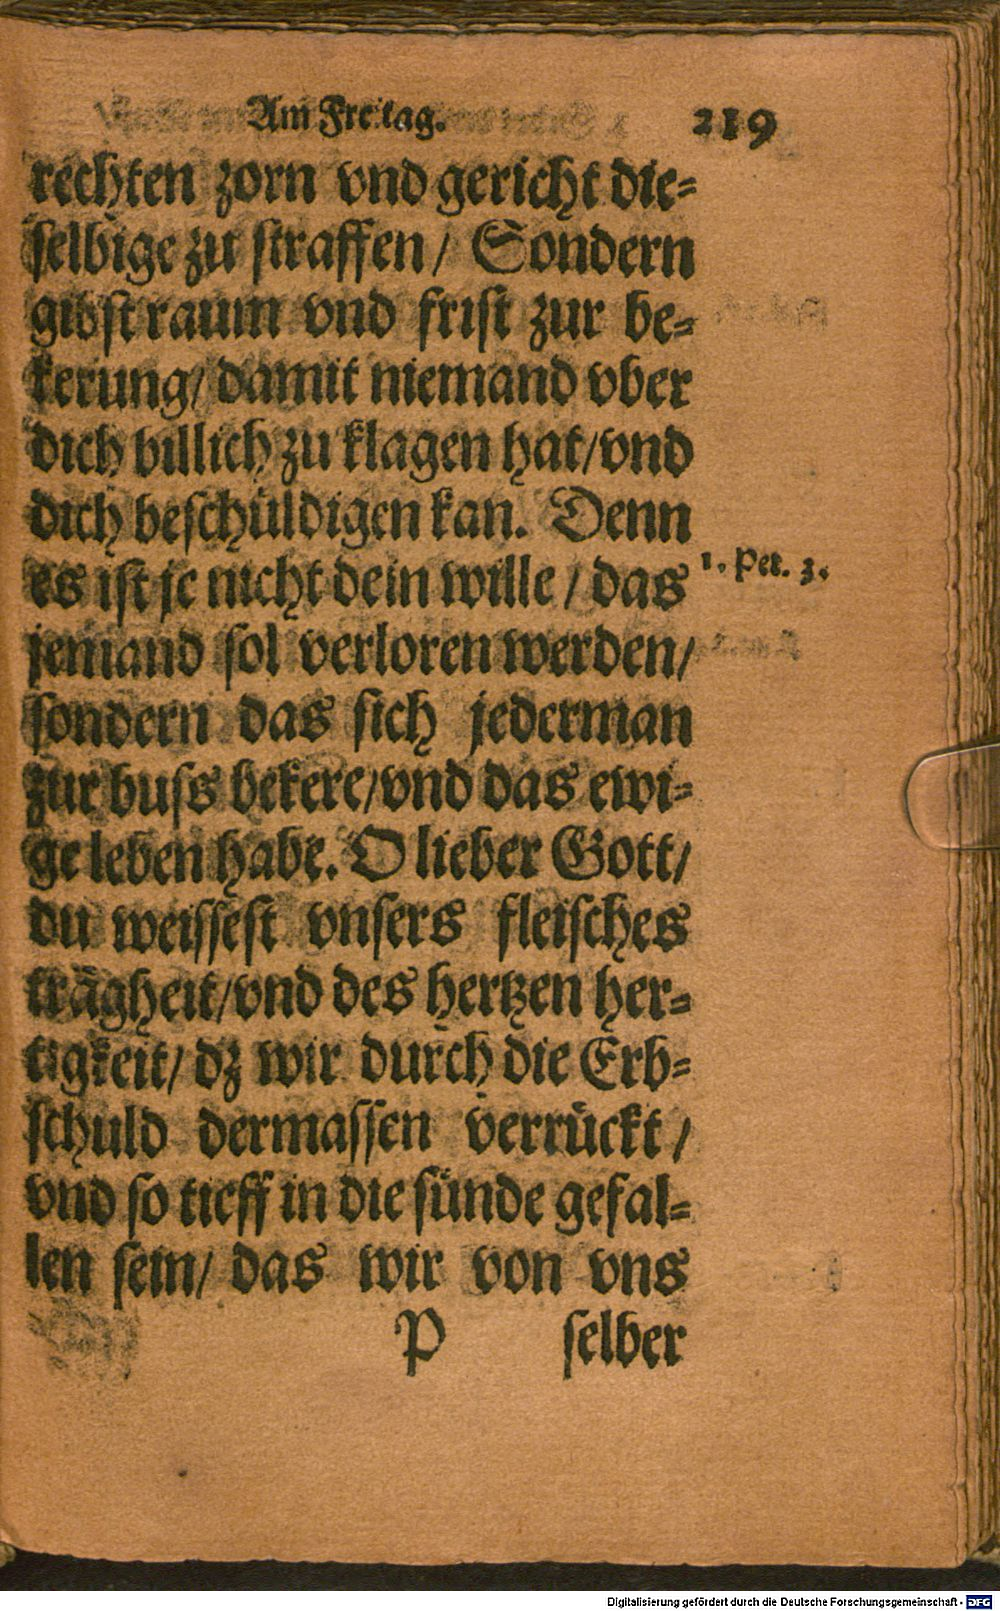 Am Freitag. 219
rechten zorn vnd gericht die-
selbige zu straffen/ Sondern
gibst raum vnd frist zur be-
kerung/ damit niemand vber
dich billich zu klagen hat/vnd
dich beschüldigen kan. Denn
es ist je nicht dein wille/ das
1. Pet. 3.
jemand sol verloren werden/
sondern das sich jederman
zur buss bekere/vnd das ewi-
ge leben habe. O lieber Gott/
du weissest vnsers fleisches
trägheit/vnd des hertzen her-
tigkeit/ dz wir durch die Erb-
schuld dermassen verrückt/
vnd so tieff in die sünde gefal-
len sein/ das wir von vns
P selber
Digitalisierung gefördert durch die Deutsche Forschungsgemeinschaft - DFG